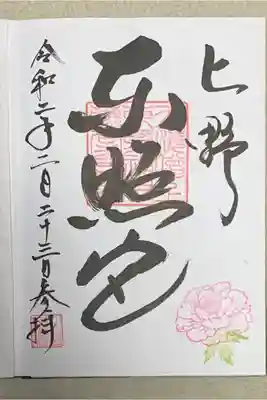 上野
東照宮
令和二年二月二十三日参拝